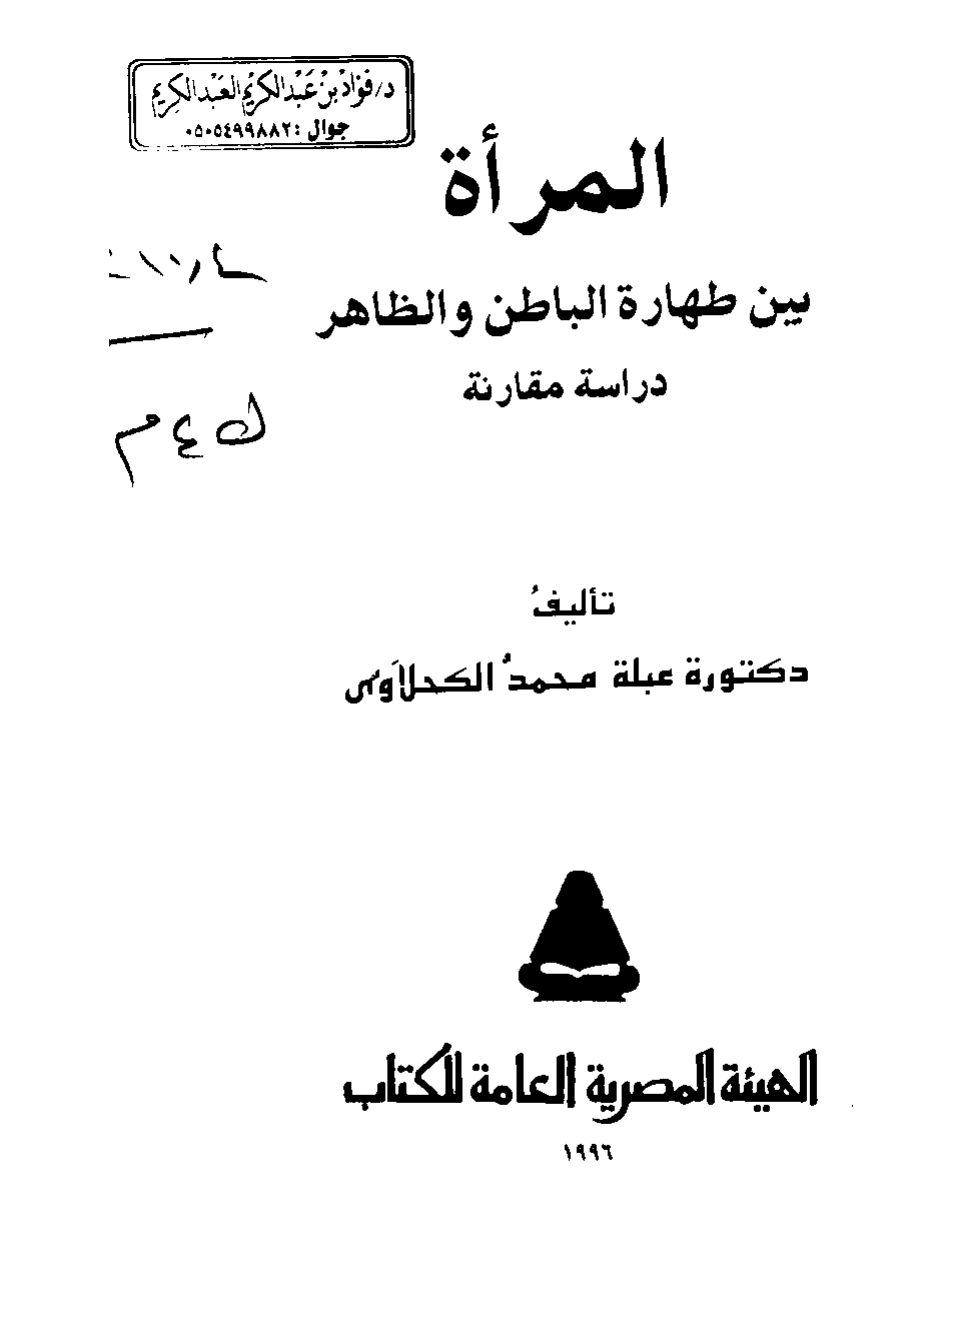 د/فؤاد بن عبد الكريم العبد الكريم
جوال : ٠٥٠٥٤٩٩٨٨٢
المرأة
بين طهارة الباطن والظاهر
دراسة مقارنة
ك ٤ م
تأليفُ
دكتورة عبلة محمدُ الكحلاَوى
الهيئة المصرية العامة للكتاب
١٩٩٦